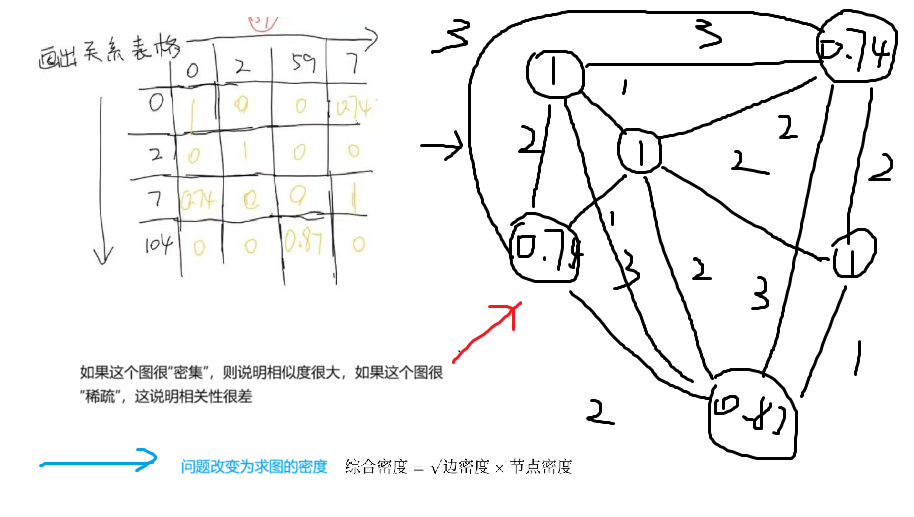 画出关系表格
0 2 59 7
0 1 0 0 0.74
2 0 1 0 0
7 0.74 0 0 1
104 0 0 0.87 0
3
3
0.74
1
1
2
2
1
2
2
1
0.74
3
2
3
1
1
0.87
2
如果这个图很"密集"，则说明相似度很大，如果这个图很
"稀疏"，这说明相关性很差
问题改变为求图的密度 综合密度 = √边密度 × 节点密度